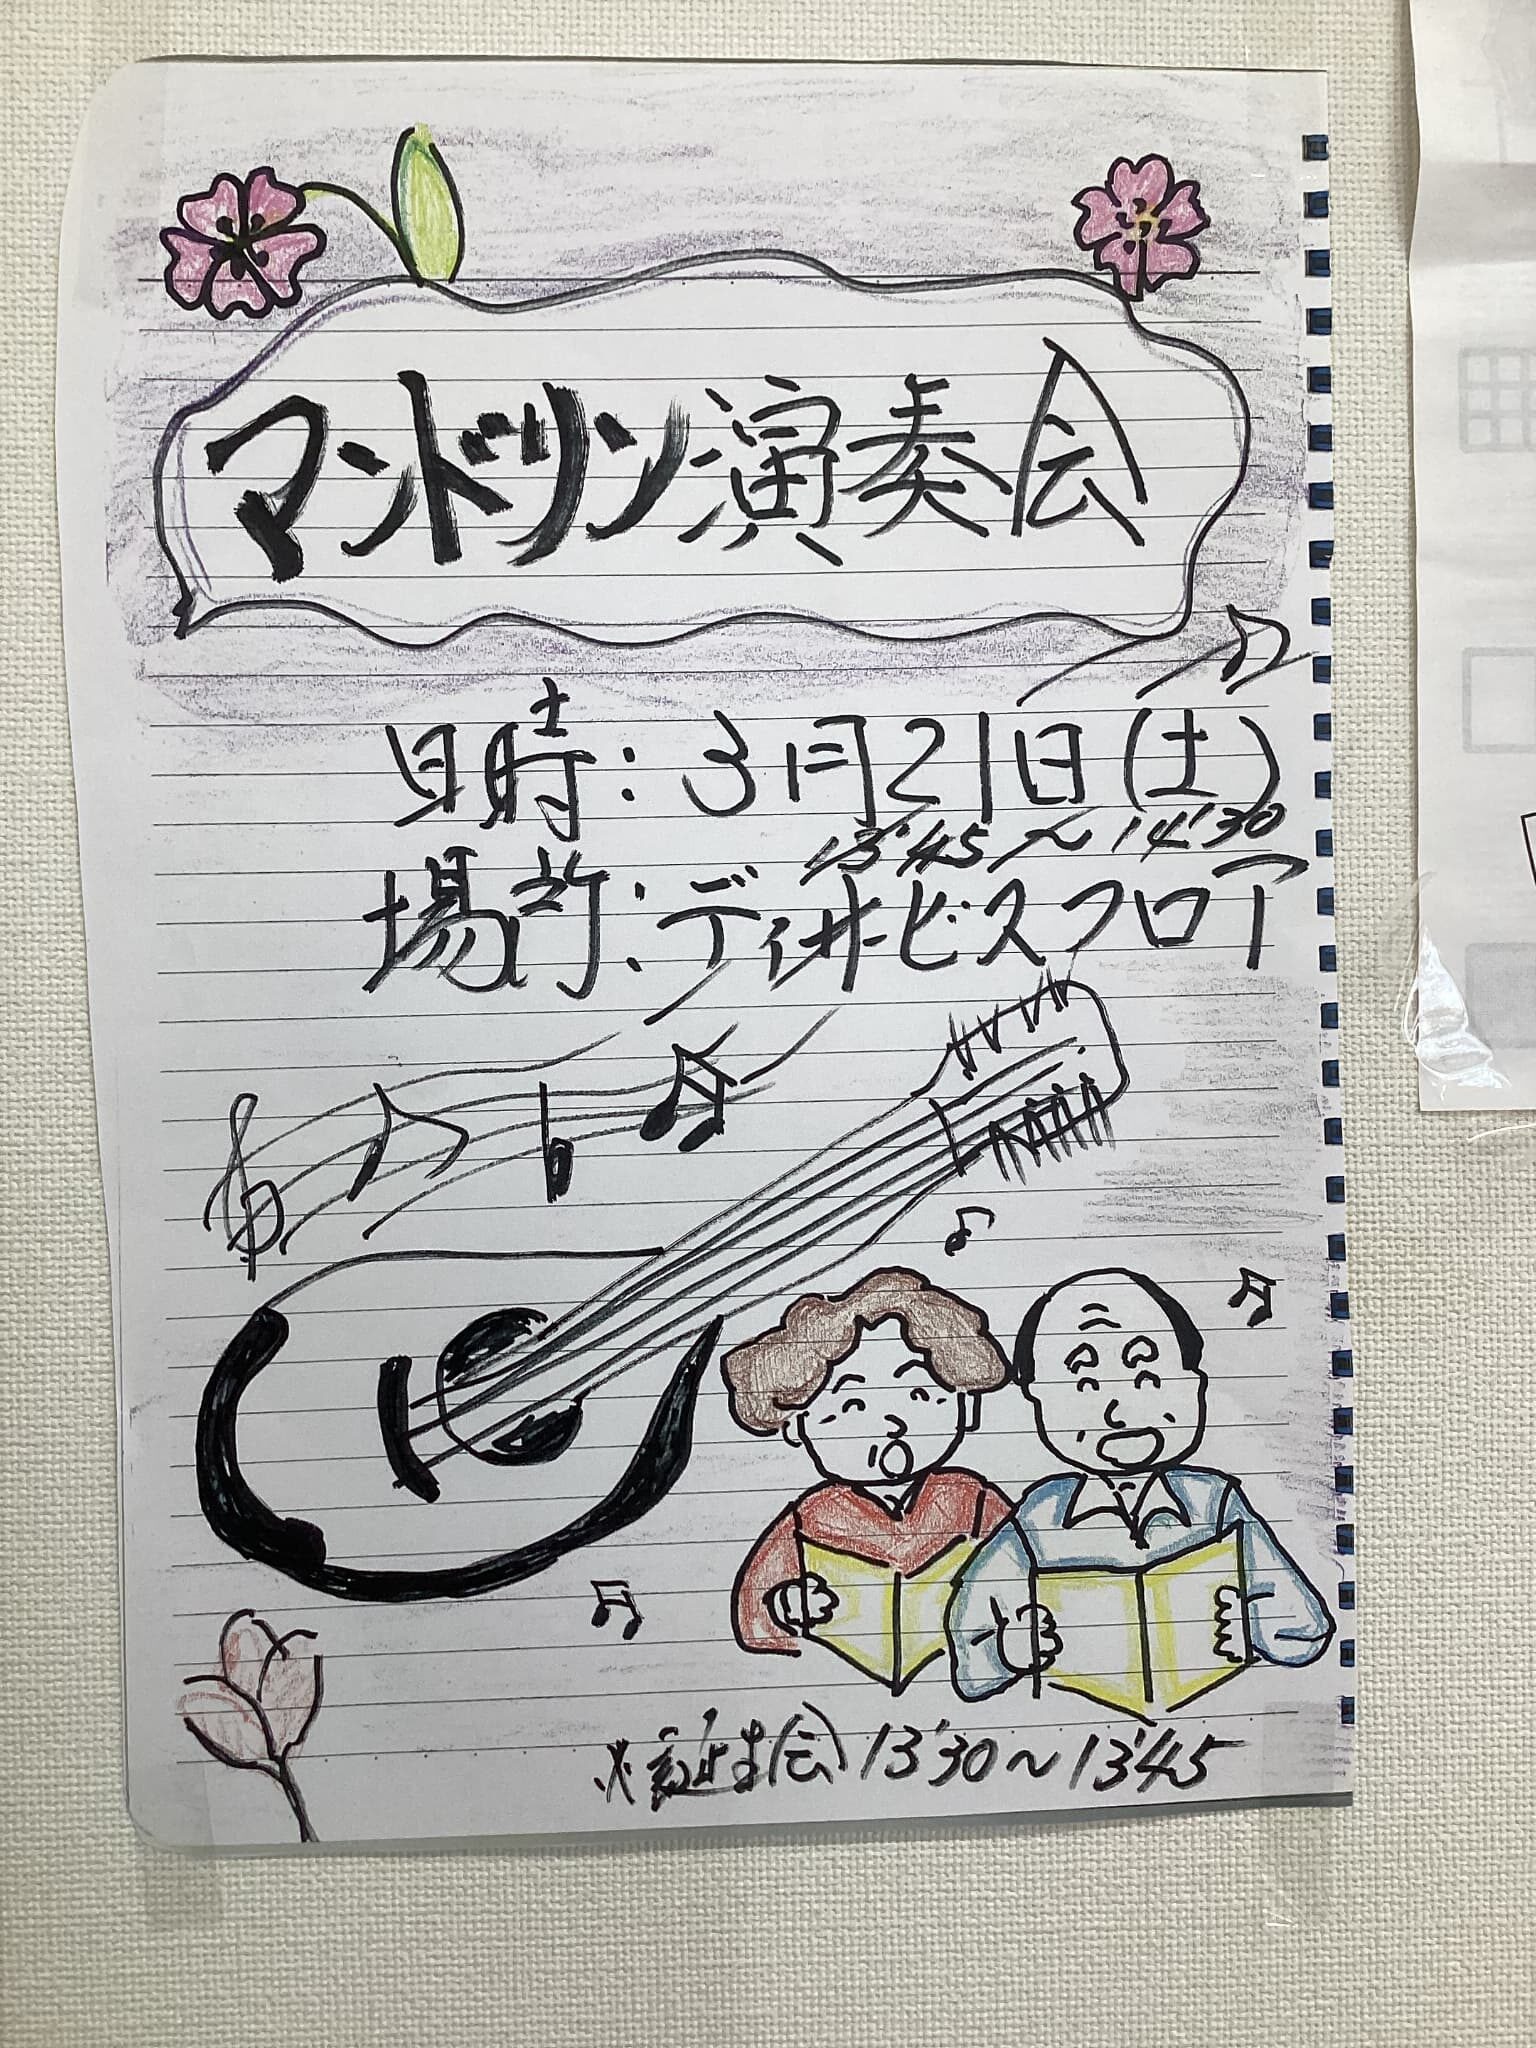 マンドリン演奏会
日時:3月21日(土)
13'45〜14'30
場所:ディサービスフロア
※誕生会 13'30〜13'45